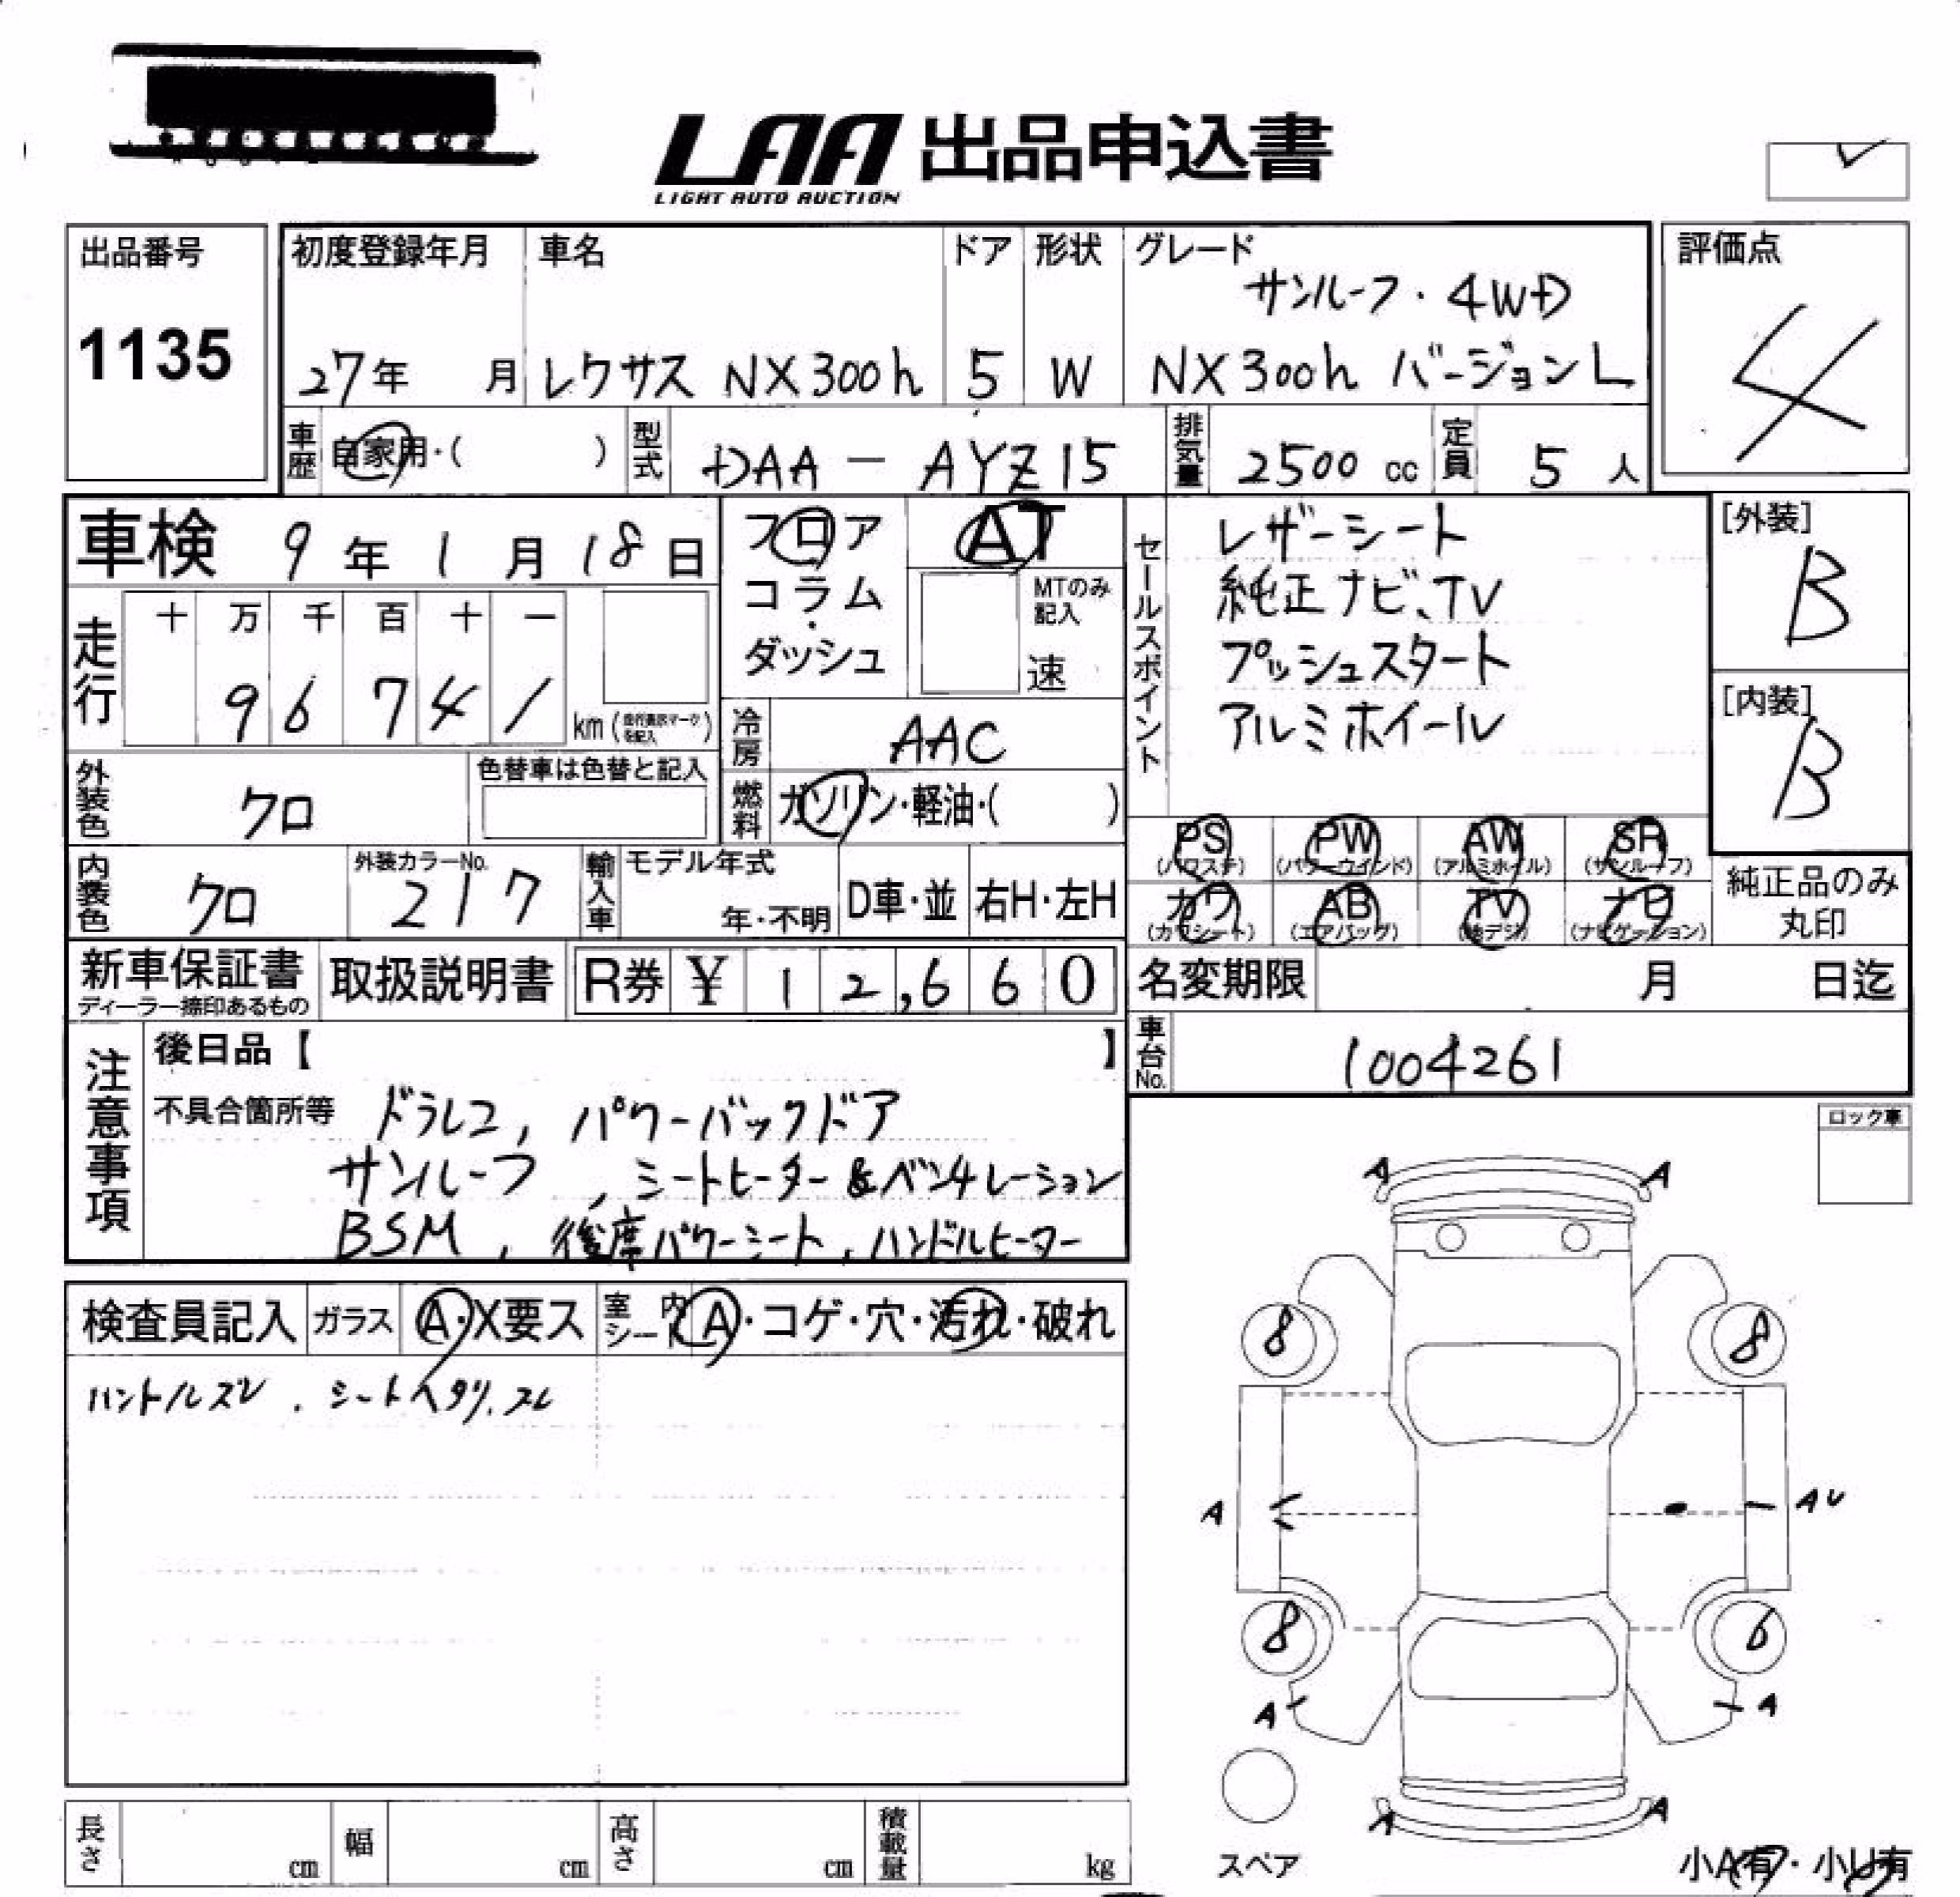 LAA 出品申込書
LIGHT AUTO AUCTION
出品番号
1135
初度登録年月
27年 月
車名
レクサス NX300h
ドア
5
形状
W
グレード
サンルーフ・4WD
NX300h バージョンL
評価点
4
車歴 自家用・( )
型式 DAA-AYZ15
排気量 2500 cc
定員 5 人
車検 9年1月18日
走行
十 万 千 百 十 一
9 6 7 4 1
km(走行表示マークを記入)
フロア
コラム
・
ダッシュ
AT
MTのみ
記入
速
冷房 AAC
燃料 ガソリン・軽油・( )
セールスポイント
レザーシート
純正ナビ、TV
プッシュスタート
アルミホイール
[外装]
B
[内装]
B
外装色 クロ
色替車は色替と記入
内装色 クロ
外装カラーNo.
217
輸入車 モデル年式
年・不明
D車・並
右H・左H
PS PW AW SR
(パワステ) (パワーウインド) (アルミホイル) (サンルーフ)
カワ AB TV ナビ
(カワシート) (エアバッグ) (地デジ) (ナビゲーション)
純正品のみ
丸印
新車保証書
ディーラー捺印あるもの
取扱説明書
R券 ¥ 12,660
名変期限 月 日迄
車台No. 1004261
注意事項
後日品【 】
不具合箇所等 ドラレコ, パワーバックドア
サンルーフ, シートヒーター&ベンチレーション
BSM, 後席パワーシート, ハンドルヒーター
ロック車
検査員記入 ガラス A・X要ス 室内シート A・コゲ・穴・汚れ・破れ
ハンドルズレ. シートヘタリ. スレ
A A
8 8
A AU
8 6
A A
A A
スペア
小A有・小U有
長さ cm 幅 cm 高さ cm 積載量 kg